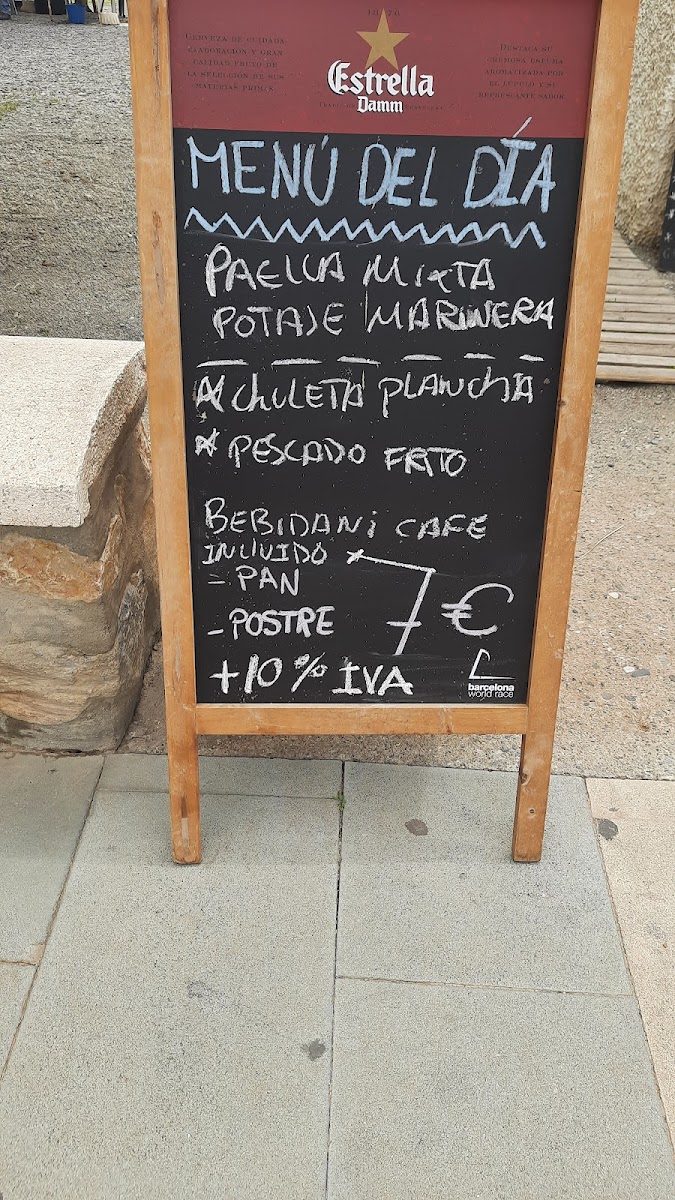 1876
CERVEZA DE CUIDADA
ELABORACIÓN Y GRAN
CALIDAD, FRUTO DE
LA SELECCIÓN DE SUS
MATERIAS PRIMAS.
DESTACA SU
CREMOSA ESPUMA
AROMATIZADA POR
EL LÚPULO Y SU
REFRESCANTE SABOR.
Estrella
Damm
BARCELONA
MENÚ DEL DÍA
PAELLA MIXTA
POTAJE MARINERA
CHULETA PLANCHA
PESCADO FRITO
BEBIDANI CAFE
INLUVIDO
- PAN
7€
- POSTRE
+10% IVA
barcelona
world race